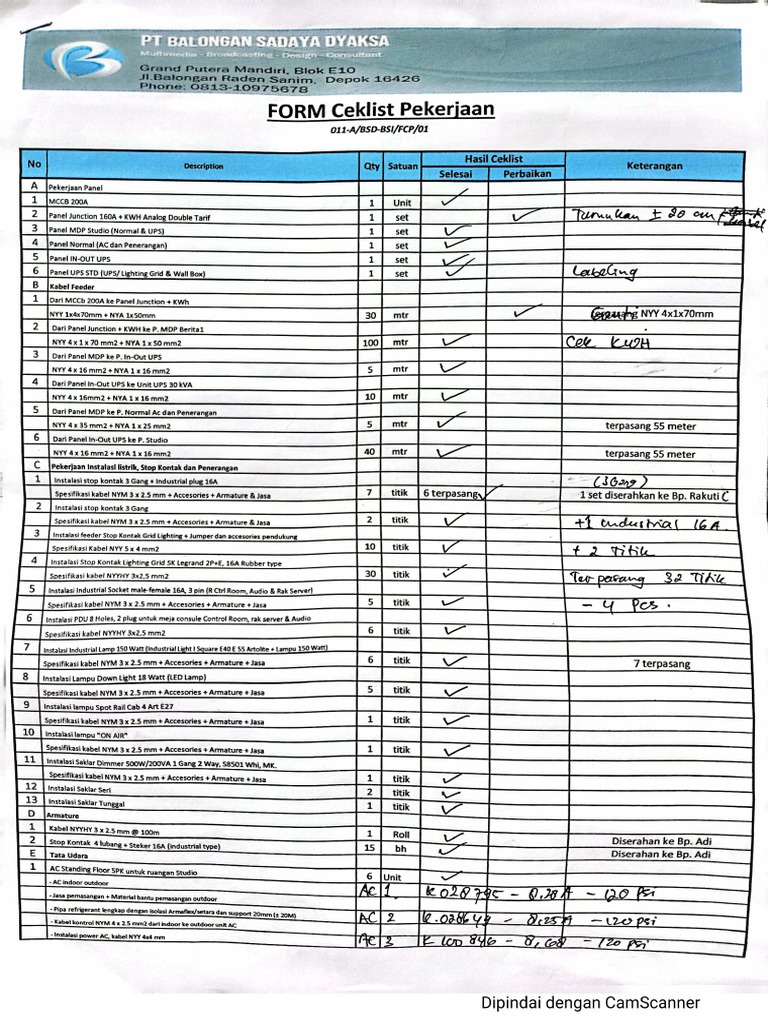 PT BALONGAN SADAYA DYAKSA
Multimedia - Broadcasting - Design - Consultant
Grand Putera Mandiri, Blok E10
Jl.Balongan Raden Sanim, Depok 16426
Phone: 0813-10975678
FORM Ceklist Pekerjaan
011-A/BSD-BSI/FCP/01
No Description Qty Satuan Hasil Ceklist Keterangan
Selesai Perbaikan
A Pekerjaan Panel
1 MCCB 200A 1 Unit ✓
2 Panel Junction 160A + KWH Analog Double Tarif 1 set ✓ Turunkan ± 20 cm
3 Panel MDP Studio (Normal & UPS) 1 set ✓
4 Panel Normal (AC dan Penerangan) 1 set ✓
5 Panel IN-OUT UPS 1 set ✓
6 Panel UPS STD (UPS/ Lighting Grid & Wall Box) 1 set ✓ Labeling
B Kabel Feeder
1 Dari MCCb 200A ke Panel Junction + KWh
NYY 1x4x70mm + NYA 1x50mm 30 mtr ✓ NYY 4x1x70mm
2 Dari Panel Junction + KWH ke P. MDP Berita1
NYY 4 x 1 x 70 mm2 + NYA 1 x 50 mm2 100 mtr ✓ Cek KWH
3 Dari Panel MDP ke P. In-Out UPS
NYY 4 x 16 mm2 + NYA 1 x 16 mm2 5 mtr ✓
4 Dari Panel In-Out UPS ke Unit UPS 30 kVA
NYY 4 x 16mm2 + NYA 1 x 16 mm2 10 mtr ✓
5 Dari Panel MDP ke P. Normal Ac dan Penerangan
NYY 4 x 35 mm2 + NYA 1 x 25 mm2 5 mtr ✓ terpasang 55 meter
6 Dari Panel In-Out UPS ke P. Studio
NYY 4 x 16 mm2 + NYA 1 x 16 mm2 40 mtr ✓ terpasang 55 meter
C Pekerjaan Instalasi listrik, Stop Kontak dan Penerangan
1 Instalasi stop kontak 3 Gang + Industrial plug 16A (3Gang)
Spesifikasi kabel NYM 3 x 2.5 mm + Accesories + Armature & Jasa 7 titik 6 terpasang ✓ 1 set diserahkan ke Bp. Rakuti C
2 Instalasi stop kontak 3 Gang
Spesifikasi kabel NYM 3 x 2.5 mm + Accesories + Armature & Jasa 2 titik ✓ +1 industrial 16A.
3 Instalasi feeder Stop Kontak Grid Lighting + Jumper dan accesories pendukung
Spesifikasi Kabel NYY 5 x 4 mm2 10 titik ✓ + 2 Titik
4 Instalasi Stop Kontak Lighting Grid SK Legrand 2P+E, 16A Rubber type
Spesifikasi kabel NYYHY 3x2,5 mm2 30 titik ✓ Terpasang 32 Titik
5 Instalasi Industrial Socket male-female 16A, 3 pin (R Ctrl Room, Audio & Rak Server)
Spesifikasi kabel NYM 3 x 2.5 mm + Accesories + Armature + Jasa 5 titik ✓ - 4 Pcs.
6 Instalasi PDU 8 Holes, 2 pluk untuk meja consule Control Room, rak server & Audio
Spesifikasi kabel NYYHY 3x2.5 mm2 6 titik ✓
7 Instalasi Industrial Lamp 150 Watt (Industrial Light I Square E40 E 55 Artolite + Lampu 150 Watt)
Spesifikasi kabel NYM 3 x 2.5 mm + Accesories + Armature + Jasa 6 titik ✓ 7 terpasang
8 Instalasi Lampu Down Light 18 Watt (LED Lamp)
Spesifikasi kabel NYM 3 x 2.5 mm + Accesories + Armature + Jasa 5 titik ✓
9 Instalasi lampu Spot Rail Cab 4 Art E27
Spesifikasi kabel NYM 3 x 2.5 mm + Accesories + Armature + Jasa 1 titik ✓
10 Instalasi lampu "ON AIR"
Spesifikasi kabel NYM 3 x 2.5 mm + Accesories + Armature + Jasa 1 titik ✓
11 Instalasi Saklar Dimmer 500W/200VA 1 Gang 2 Way, S8501 Whi, MK.
Spesifikasi kabel NYM 3 x 2.5 mm + Accesories + Armature + Jasa 1 titik ✓
12 Instalasi Saklar Seri 2 titik ✓
13 Instalasi Saklar Tunggal 1 titik ✓
D Armature
1 Kabel NYYHY 3 x 2.5 mm @ 100m 1 Roll ✓ Diserahan ke Bp. Adi
2 Stop Kontak 4 lubang + Steker 16A (industrial type) 15 bh ✓ Diserahan ke Bp. Adi
E Tata Udara
1 AC Standing Floor 5PK untuk ruangan Studio 6 Unit ✓
- AC indoor outdoor AC 1. K028795 - 8.28A - 120 psi
- Jasa pemasangan + Material bantu pemasangan outdoor
- Pipa refrigerant lengkap dengan isolasi Armaflex/setara dan support 20mm (± 20M) AC 2 K.028649 - 8,25A - 120 psi
- Kabel kontrol NYM 4 x 2.5 mm2 dari indoor ke outdoor unit AC
- Instalasi power AC, kabel NYY 4x4 mm AC 3 K100846 - 8,68 - 120 psi
Dipindai dengan CamScanner